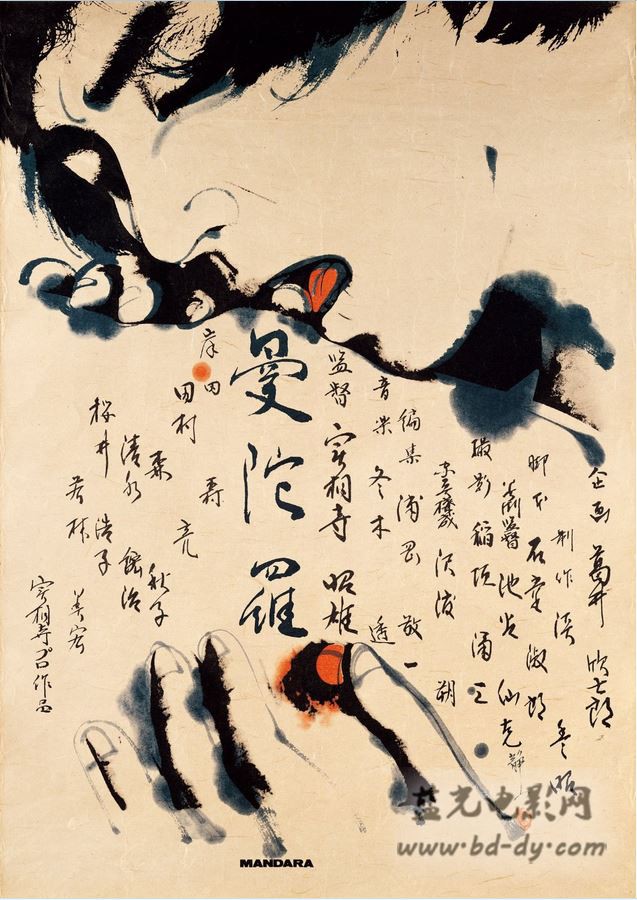 企画 葛井 欣士郎
制作 淡 豊昭
脚本 石堂 淑朗
美術監督 池谷 仙克
静
撮影 稲垣 涌三
沢渡 朔
編集 浦岡 敬一
音楽 冬木 透
監督 実相寺 昭雄
曼陀羅
岸田 森
田村 亮
清水 紘治
桜井 浩子
若林 美宏
実相寺プロ作品
MANDARA
蓝光电影网
www.bd-dy.com